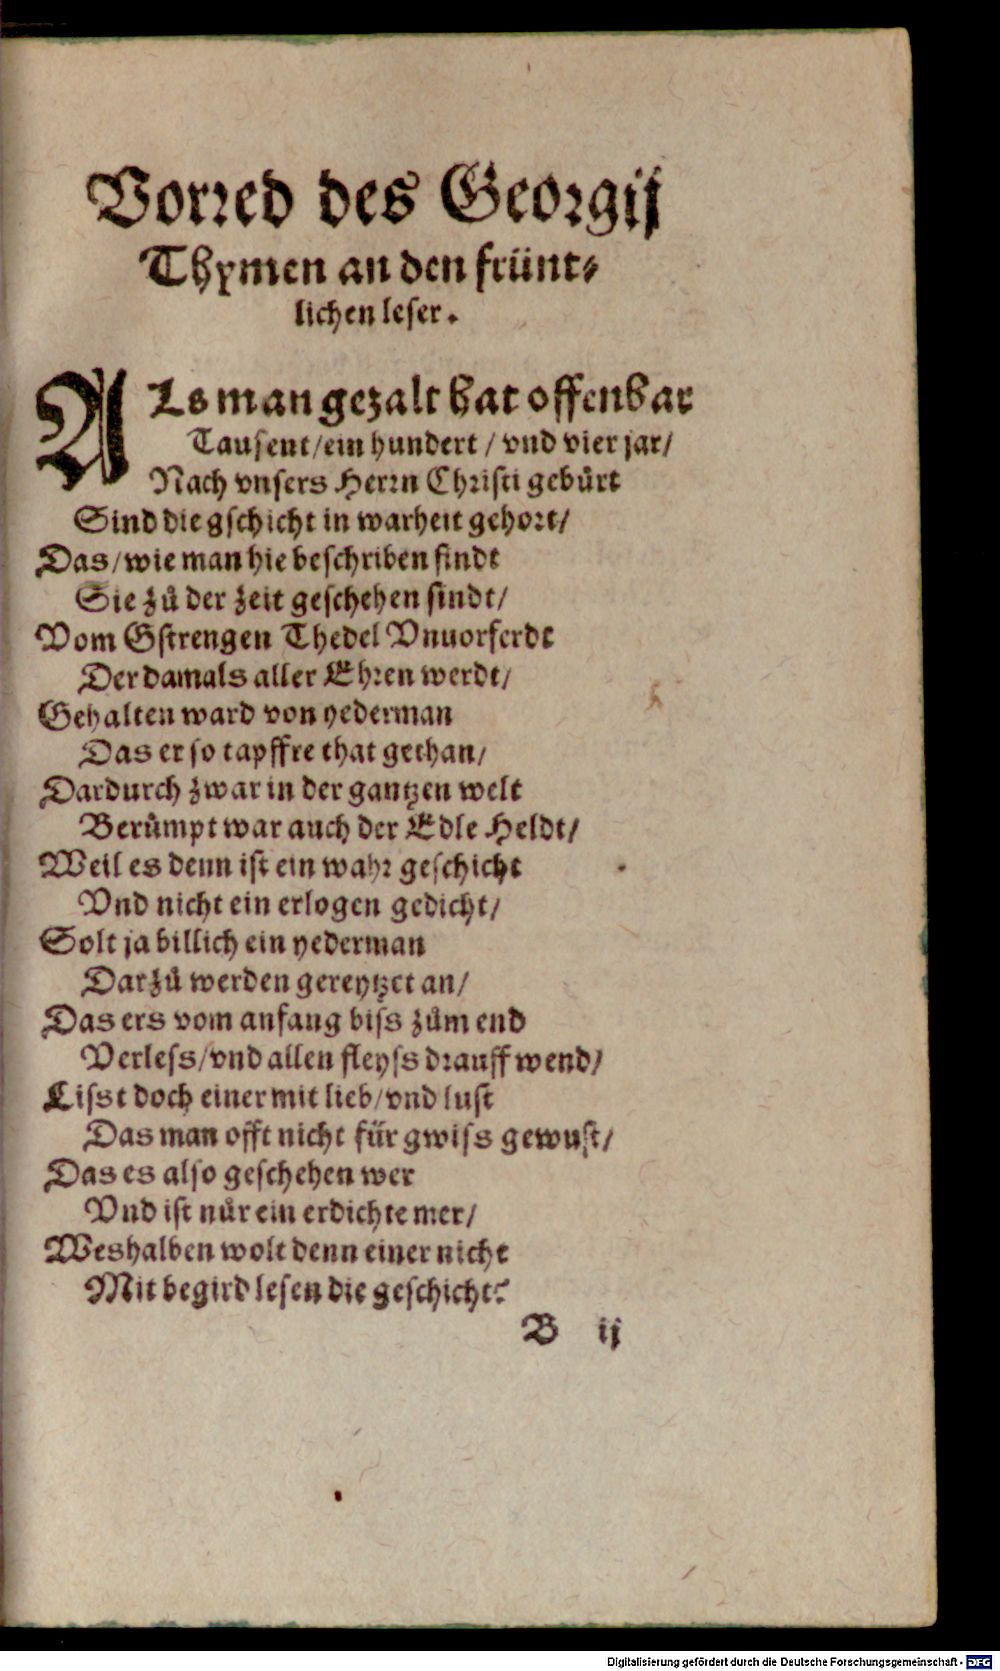 Vorred des Georgij
Thymen an den früntlichen leser.
ALs man gezalt hat offenbar
Tausent/ein hundert / vnd vier jar/
Nach vnsers Herrn Christi gebůrt
Sind die gschicht in warheit gehort/
Das/wie man hie beschriben findt
Sie zů der zeit geschehen sindt/
Vom Gstrengen Thedel Vnuorferdt
Der damals aller Ehren werdt/
Gehalten ward von yederman
Das er so tapffre that gethan/
Dardurch zwar in der gantzen welt
Berůmpt war auch der Edle Heldt/
Weil es denn ist ein wahr geschicht
Vnd nicht ein erlogen gedicht/
Solt ja billich ein yederman
Darzů werden gereytzet an/
Das ers vom anfang biss zům end
Verless/vnd allen fleyss drauff wend/
Lisst doch einer mit lieb/vnd lust
Das man offt nicht für gwiss gewust/
Das es also geschehen wer
Vnd ist nůr ein erdichte mer/
Weshalben wolt denn einer nicht
Mit begird lesen die geschicht?
B ij
Digitalisierung gefördert durch die Deutsche Forschungsgemeinschaft - DFG